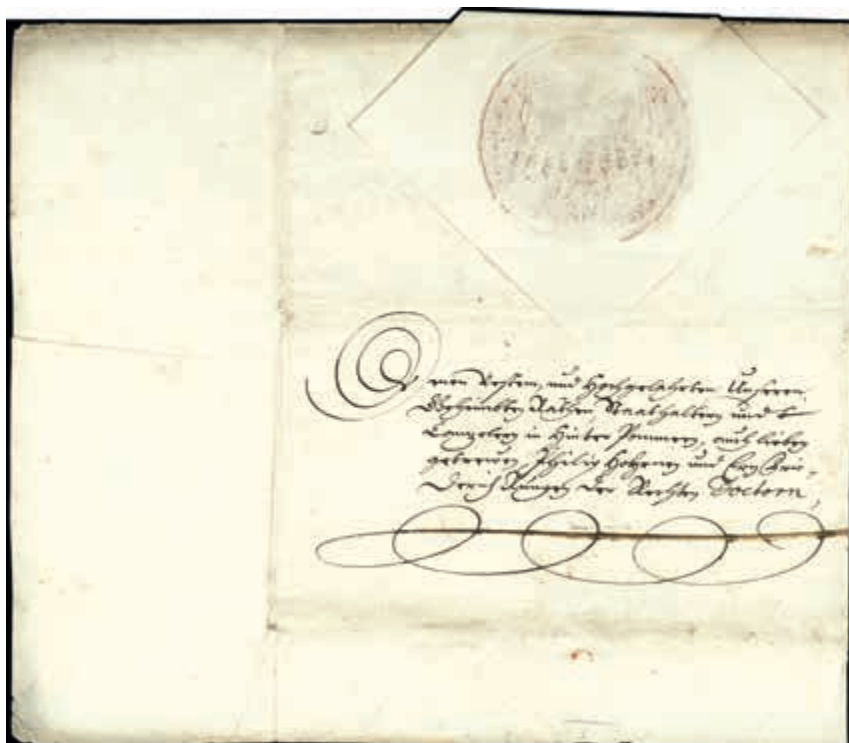 Denen Vesten, und Hochgelahrten Unseren
Geheimbten Räthen Staathaltern und
Cantzlern in Hinter Pommern, auch lieben
getrewen, Philip Hornen und Ern Frie-
derich Rungen der Rechten Doctorn,